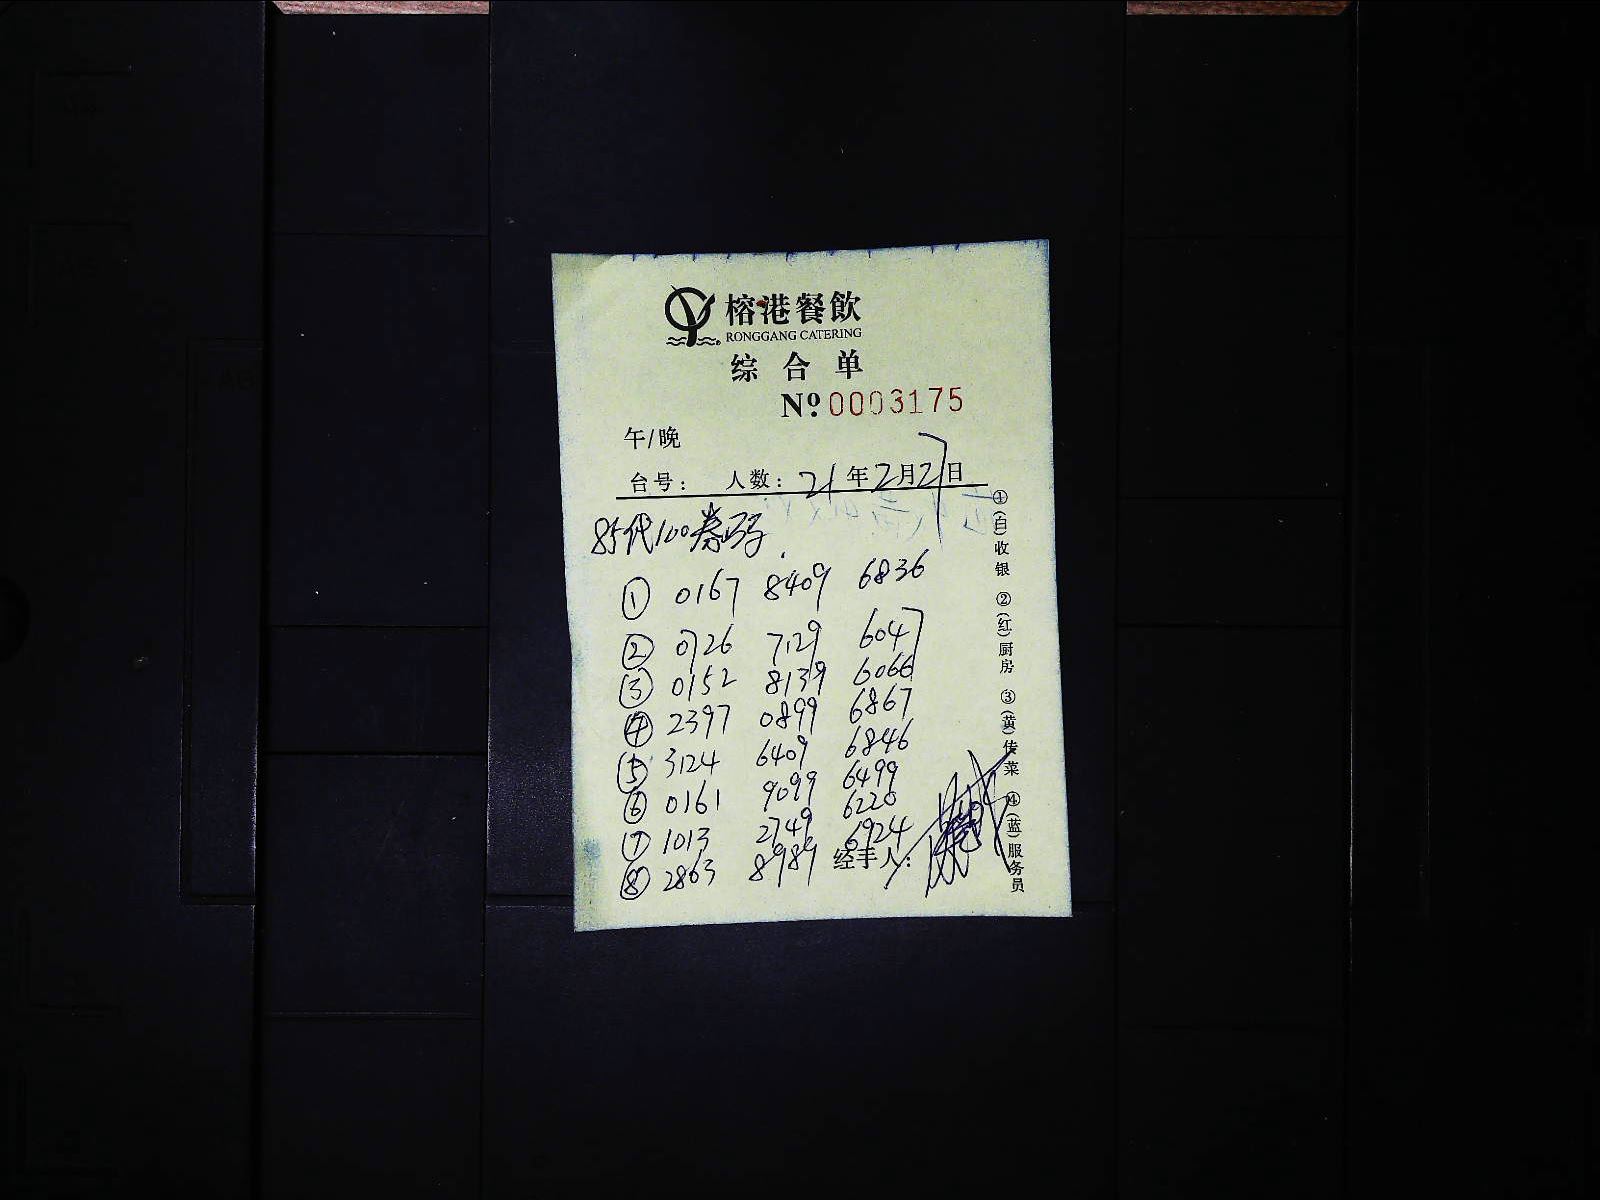 榕港餐飲
RONGGANG CATERING
综合单
Nº 0003175
午/晚
台号: 人数: 21年2月27日
85代100券号
① 0167 8409 6836
② 0726 7129 6047
③ 0152 8139 6066
④ 2397 0899 6867
⑤ 3124 6409 6846
⑥ 0161 9099 6499
⑦ 1013 2749 6220
⑧ 2863 8989 6924
经手人:
①(白)收银 ②(红)厨房 ③(黄)传菜 ④(蓝)服务员